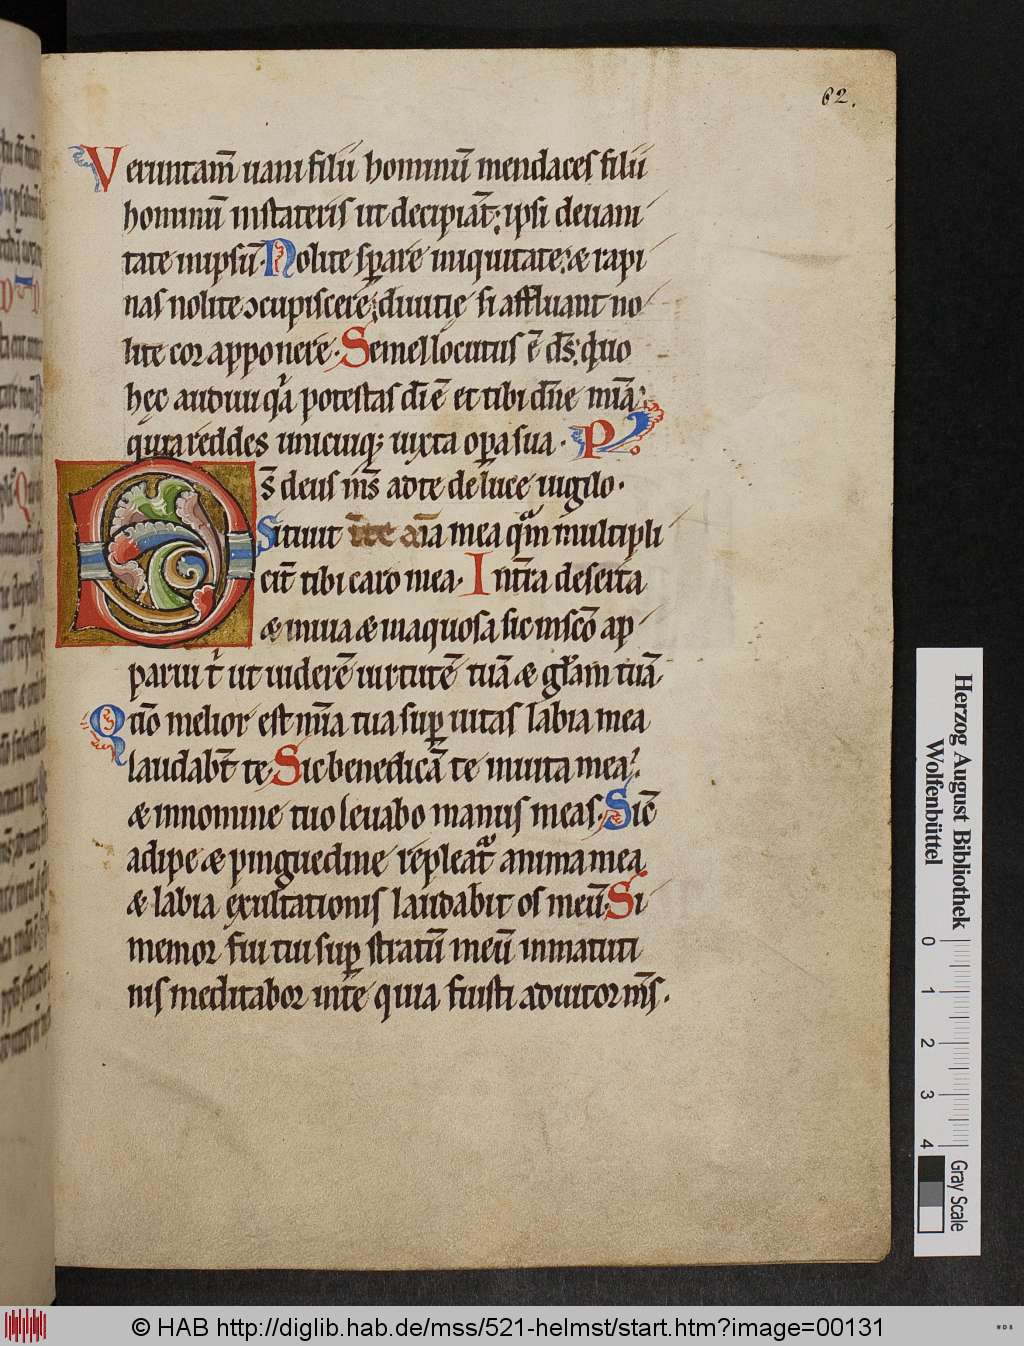 62.
Veruntam̄ uani filii hominū mendaces filii
hominū instateris ut decipiāt; ipsi deuani
tate inipsū. Nolite sꝑare iniquitatē; & rapi
nas nolite ɔcupiscere; diuitię si affluant no
lite cor apponere. Semel locutus ē ds̄; duo
hęc audiui q̄a potestas dī ē et tibi dn̄e mīa;
quia reddes unicuiq; iuxta oꝑa sua. P
Ds̄ deus ms̄ ad te de luce uigilo.
Sitiuit īte aīa mea qm̄ multipli
cit̄ tibi caro mea. Int̄ra deserta
& inuia & inaquosa sic insc̄o ap
parui t' ut uiderē uirtutē tuā & gl̄am tuā
Qn̄o melior est mīa tua suꝑ uitas labia mea
laudabt̄ te. Sic benedicā te inuita mea;
& innomine tuo leuabo manus meas. Sic̄
adipe & pinguedine repleat᷑ anima mea
& labia exultationis laudabit os meū. Si
memor fui tui suꝑ stratū meū inmatuti
nis meditabor int̄e quia fuisti adiutor ms̄.
Herzog August Bibliothek
Wolfenbüttel
0 1 2 3 4
Gray Scale
© HAB http://diglib.hab.de/mss/521-helmst/start.htm?image=00131